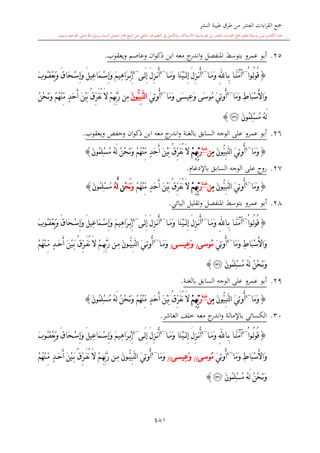 جمع القراءات العشر من طرق طيبة النشر
٢٥. أبو عمرو بتوسط المنفصل واندرج معه ابن ذكوان وعاصم ويعقوب.
﴿ قُولُوٓا۟ ءَامَنَّا بِٱللَّهِ وَمَآ أُنزِلَ إِلَيْنَا وَمَآ أُنزِلَ إِلَىٰٓ إِبْرَٰهِـۧمَ وَإِسْمَـٰعِيلَ وَإِسْحَـٰقَ وَيَعْقُوبَ
وَٱلْأَسْبَاطِ وَمَآ أُوتِىَ مُوسَىٰ وَعِيسَىٰ وَمَآ أُوتِىَ ٱلنَّبِيُّونَ مِن رَّبِّهِمْ لَا نُفَرِّقُ بَيْنَ أَحَدٍ مِّنْهُمْ وَنَحْنُ
لَهُۥ مُسْلِمُونَ ﴾
٢٦. أبو عمرو على الوجه السابق بالغنة واندرج معه ابن ذكوان وحفص ويعقوب.
﴿ وَمَآ أُوتِىَ ٱلنَّبِيُّونَ مِن رَّبِّهِمْ لَا نُفَرِّقُ بَيْنَ أَحَدٍ مِّنْهُمْ وَنَحْنُ لَهُۥ مُسْلِمُونَ ﴾
٢٧. روح على الوجه السابق بالإدغام.
﴿ وَمَآ أُوتِىَ ٱلنَّبِيُّونَ مِن رَّبِّهِمْ لَا نُفَرِّقُ بَيْنَ أَحَدٍ مِّنْهُمْ وَنَحْن لَّهُۥ مُسْلِمُونَ ﴾
٢٨. أبو عمرو بتوسط المنفصل وتقليل اليائي.
﴿ قُولُوٓا۟ ءَامَنَّا بِٱللَّهِ وَمَآ أُنزِلَ إِلَيْنَا وَمَآ أُنزِلَ إِلَىٰٓ إِبْرَٰهِـۧمَ وَإِسْمَـٰعِيلَ وَإِسْحَـٰقَ وَيَعْقُوبَ
وَٱلْأَسْبَاطِ وَمَآ أُوتِىَ مُوسَى وَعِيسَى وَمَآ أُوتِىَ ٱلنَّبِيُّونَ مِن رَّبِّهِمْ لَا نُفَرِّقُ بَيْنَ أَحَدٍ مِّنْهُمْ
وَنَحْنُ لَهُۥ مُسْلِمُونَ ﴾
٢٩. أبو عمرو على الوجه السابق بالغنة.
﴿ وَمَآ أُوتِىَ ٱلنَّبِيُّونَ مِن رَّبِّهِمْ لَا نُفَرِّقُ بَيْنَ أَحَدٍ مِّنْهُمْ وَنَحْنُ لَهُۥ مُسْلِمُونَ ﴾
٣٠. الكسائي بالإمالة واندرج معه خلف العاشر.
﴿ قُولُوٓا۟ ءَامَنَّا بِٱللَّهِ وَمَآ أُنزِلَ إِلَيْنَا وَمَآ أُنزِلَ إِلَىٰٓ إِبْرَٰهِـۧمَ وَإِسْمَـٰعِيلَ وَإِسْحَـٰقَ وَيَعْقُوبَ
وَٱلْأَسْبَاطِ وَمَآ أُوتِىَ مُوسَى وَعِيسَى وَمَآ أُوتِىَ ٱلنَّبِيُّونَ مِن رَّبِّهِمْ لَا نُفَرِّقُ بَيْنَ أَحَدٍ مِّنْهُمْ
وَنَحْنُ لَهُۥ مُسْلِمُونَ ﴾
٤٨١